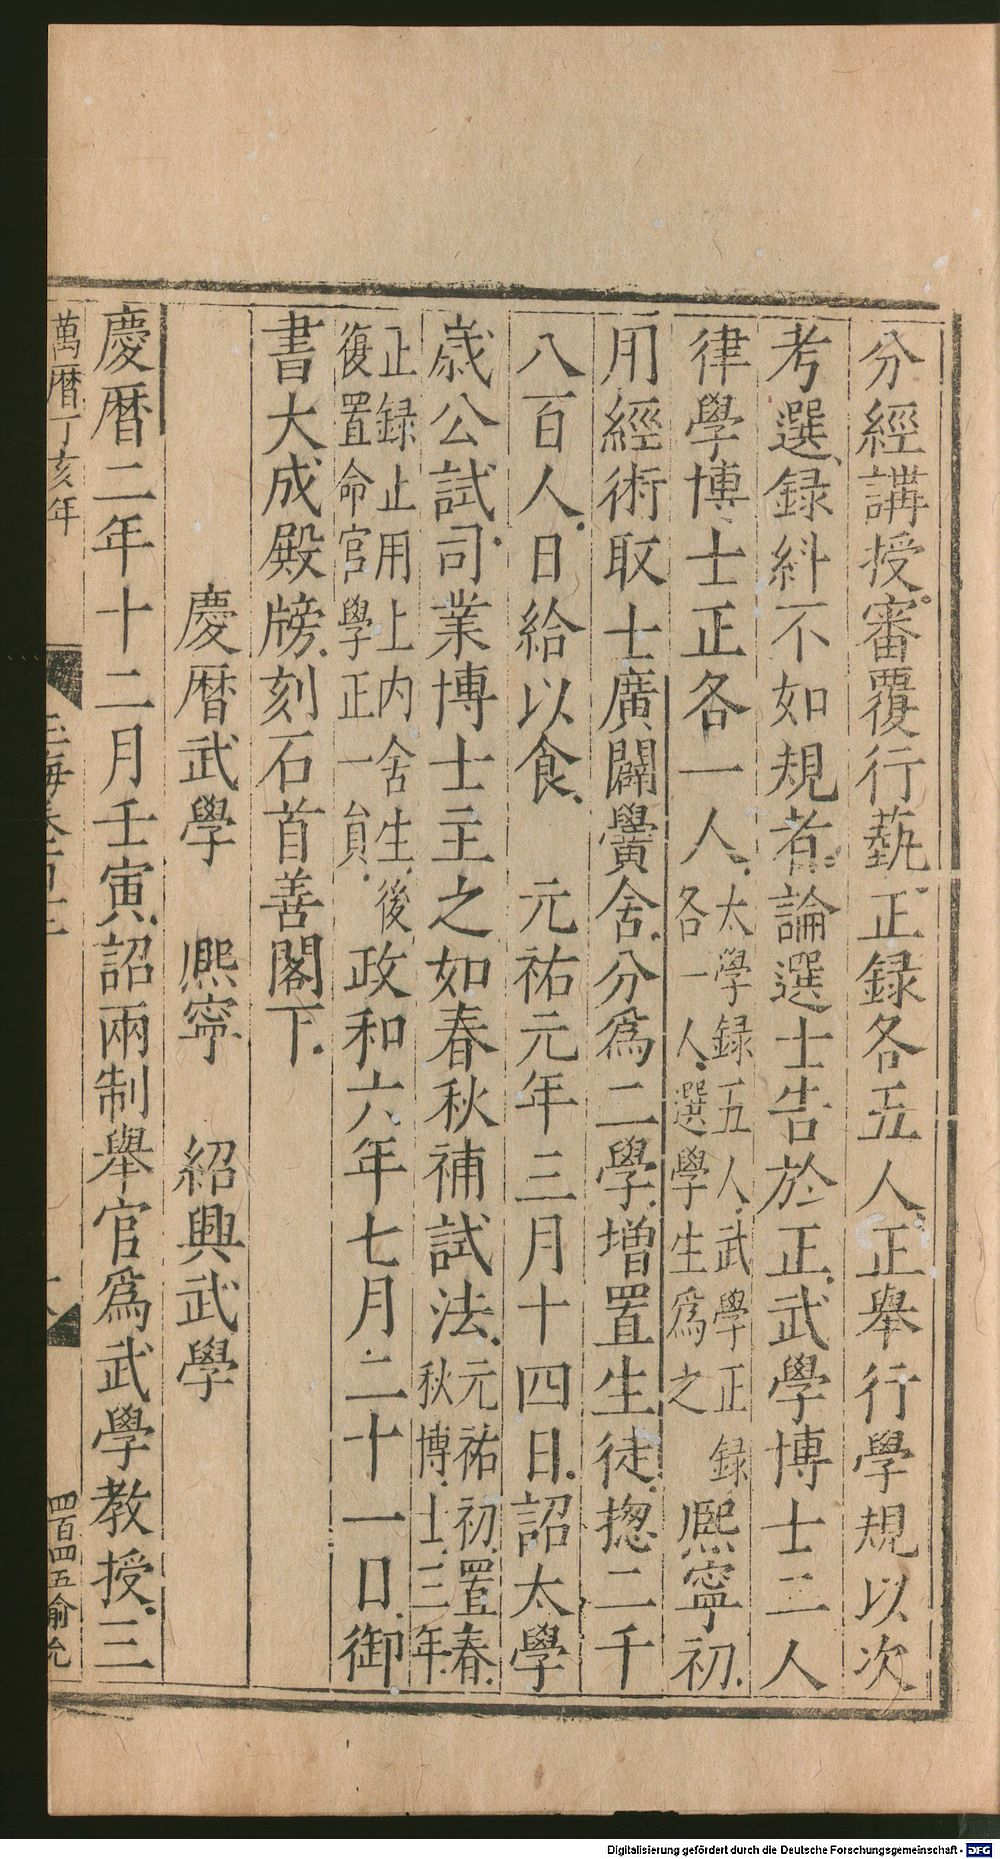 分經講授審覆行藝正録各五人正舉行學規以次
考選録糾不如規者論選士告於正武學博士二人
律學博士正各一人太學録五人武學正録各一人選學生爲之熈寧初
用經術取士廣闢黌舍分爲二學增置生徒揔二千
八百人日給以食 元祐元年三月十四日詔太學
歳公試司業博士主之如春秋補試法元祐初置春秋博士三年
止録止用上内舍生後復置命官學正一員政和六年七月二十一日御
書大成殿牓刻石首善閣下
慶暦武學 熈寧 紹興武學
慶暦二年十二月壬寅詔兩制舉官爲武學教授三
萬暦丁亥年
四百四五俞允
Digitalisierung gefördert durch die Deutsche Forschungsgemeinschaft - DFG